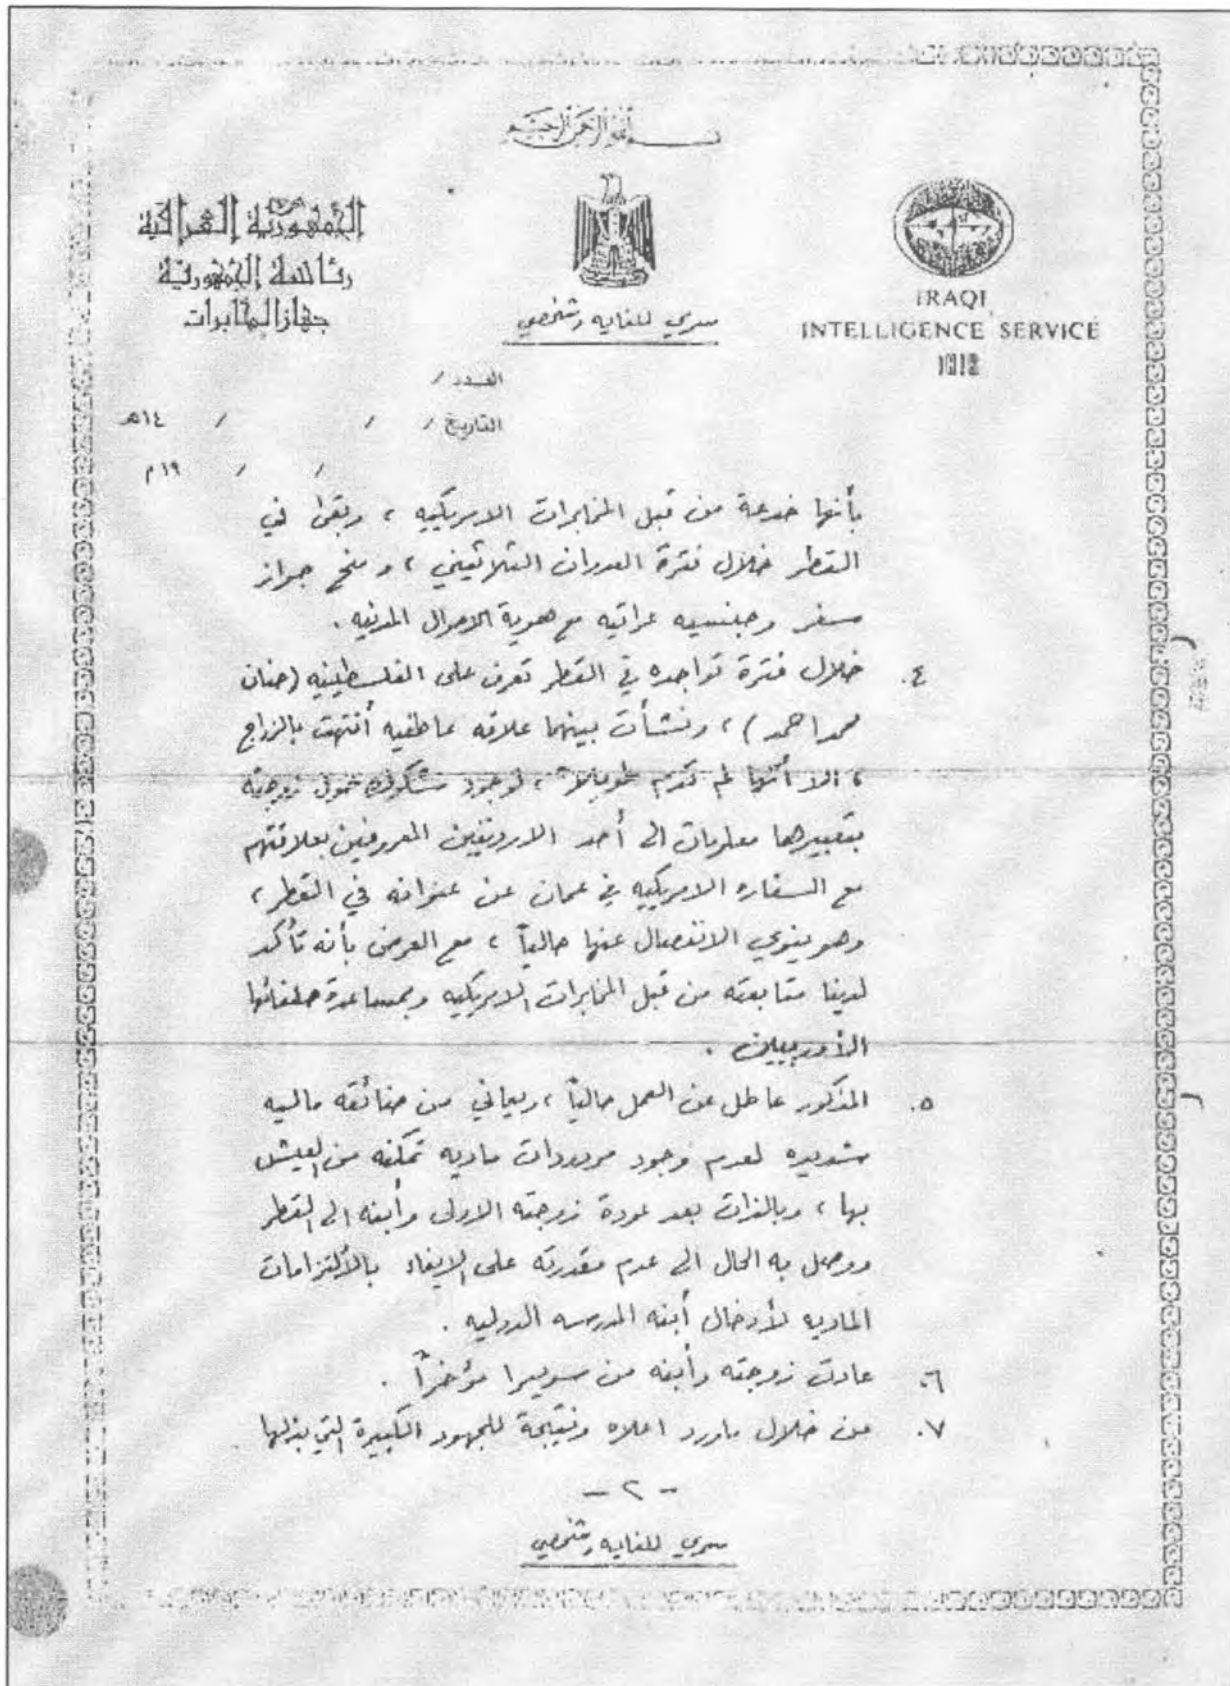 بسم الله الرحمن الرحيم
الجمهورية العراقية
رئاسة الجمهورية
جهاز المخابرات
سري للغايه وشخصي
IRAQI
INTELLIGENCE SERVICE
العدد /
التاريخ / / / ١٤هـ
/ / ١٩م
بأنها خدعة من قبل المخابرات الامريكيه ، وبقى في
القطر خلال فترة العدوان الثلاثيني ، ومنح جواز
سفر وجنسيه عراقيه مع هوية الاحوال المدنيه .
٤. خلال فترة تواجده في القطر تعرف على الفلسطينيه (حنان
محمد احمد) ، ونشأت بينهما علاقه عاطفيه أنتهت بالزواج
، الا أنها لم تدم طويلاً ، لوجود شكوك حول زوجته
بتمريرها معلومات الى أحد الاردنيين المعروفين بعلاقتهم
مع السفاره الامريكيه في عمان عن عنوانه في القطر ،
وهو ينوي الانفصال عنها حالياً ، مع العرض بأنه تأكد
لدينا متابعته من قبل المخابرات الامريكيه وبمساعدة حلفائها
الأوربيين .
٥. المذكور عاطل عن العمل حالياً ، ويعاني من ضائقه ماليه
شديده لعدم وجود مردودات ماديه تمكنه من العيش
بها ، وبالذات بعد عودة زوجته الاولى وأبنه الى القطر
ووصل به الحال الى عدم مقدرته على الايفاء بالألتزامات
الماديه لأدخال أبنه المدرسه الدوليه .
٦. عادت زوجته وأبنه من سويسرا مؤخراً .
٧. من خلال ماورد اعلاه ونتيجة للجهود الكبيرة التي بذلها
- ٢ -
سري للغايه وشخصي